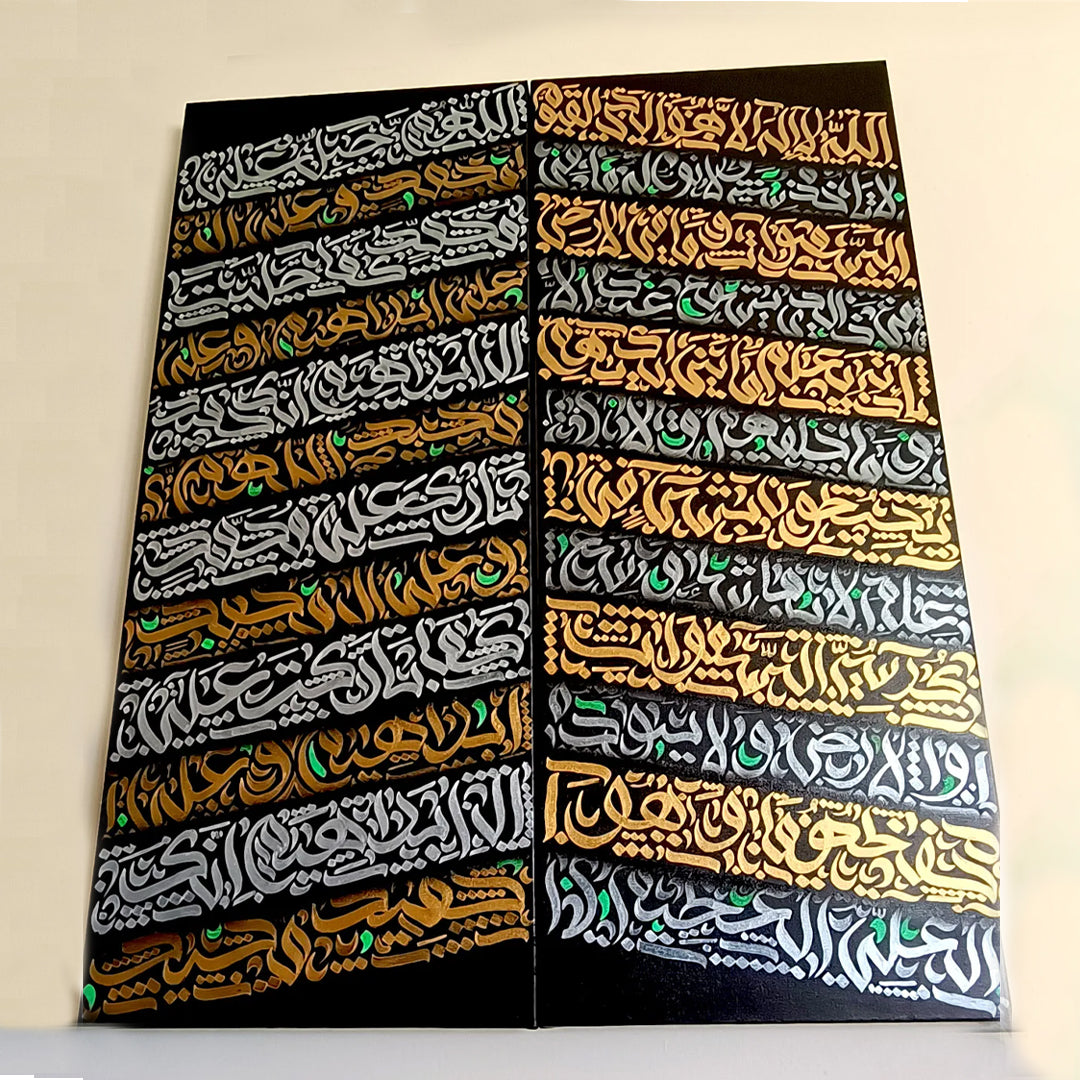 الله لا إله إلا هو الحي القيوم
لا تأخذه سنة ولا نوم له ما في
السموات وما في الأرض
من ذا الذي يشفع عنده إلا
بإذنه يعلم ما بين أيديهم
وما خلفهم ولا
يحيطون بشيء من
علمه إلا بما شاء وسع
كرسيه السموات
والأرض ولا يئوده
حفظهما وهو
العلي العظيم
اللهم صل على
محمد وعلى آل
محمد كما صليت
على ابراهيم وعلى
آل ابراهيم إنك حميد
مجيد اللهم
بارك على محمد
وعلى آل محمد
كما باركت على
ابراهيم وعلى
آل ابراهيم إنك
حميد مجيد